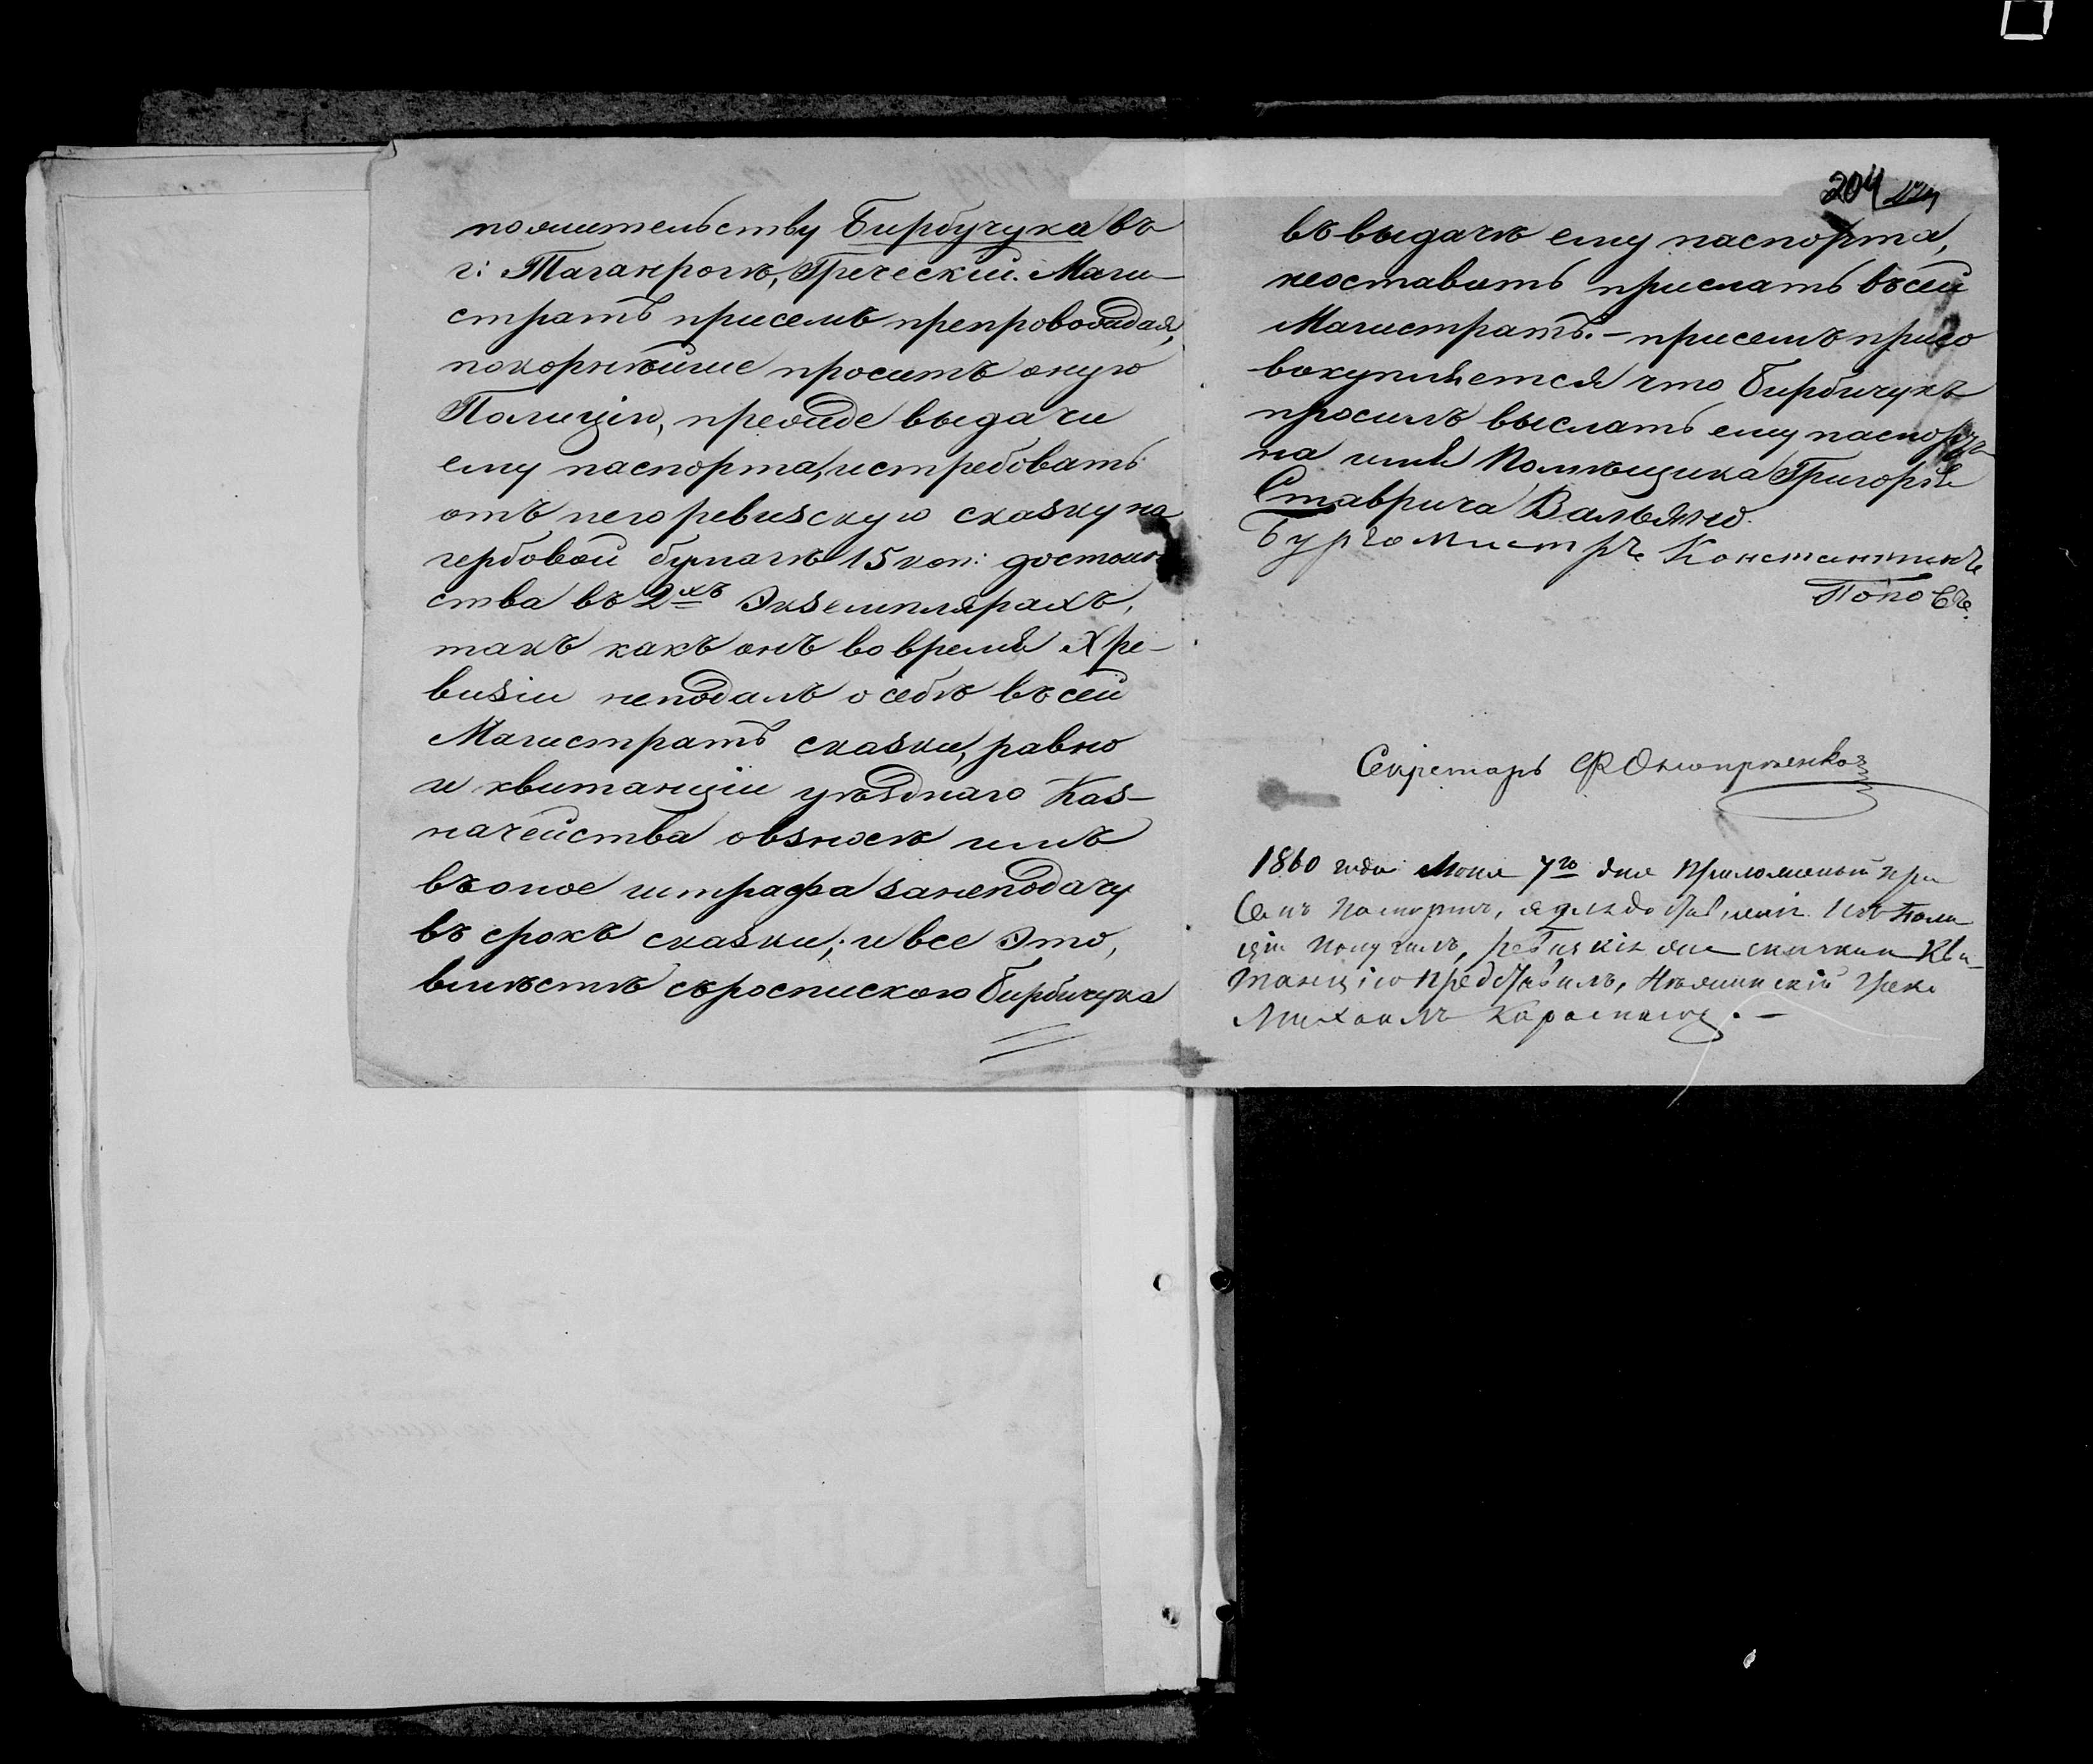 пожительству Бирбучука въ
г: Таганрогѣ, Греческій Маги-
стратъ присемъ препровождая,
покорнѣйше проситъ оную
Полицію, прежде выдачи
ему паспорта, истребовать
отъ него ревизскую сказку на
гербовой бумагѣ 15 коп: достоин-
ства въ 2хъ Экземплярахъ,
такъ какъ онъ вовремя X ре-
визіи неподалъ о себѣ въ сей
Магистратъ сказки, равно
и квитанціи уѣзднаго Каз-
начейства овзносѣ имъ
въоное штрафа занеподачу
въ срокъ сказки; и все Это,
вмѣстѣ съроспискою Бирбичука
204
въ выдачѣ ему паспорта,
неоставить прислать въсей
Магистратъ. - присемъ присо
вокупляется что Бирбичукъ
просилъ выслать ему паспортъ
на имя Помѣщика Григорія
Ставрича Вальяно.
Бургомистръ Константинъ
Поповъ.
Секретарь
1860 года Июня 7го дня Приложенный при
семъ Паспортъ, Поли
ціи Получилъ, Кви-
танцію представилъ, Нѣжинскій Грекъ
Михаилъ